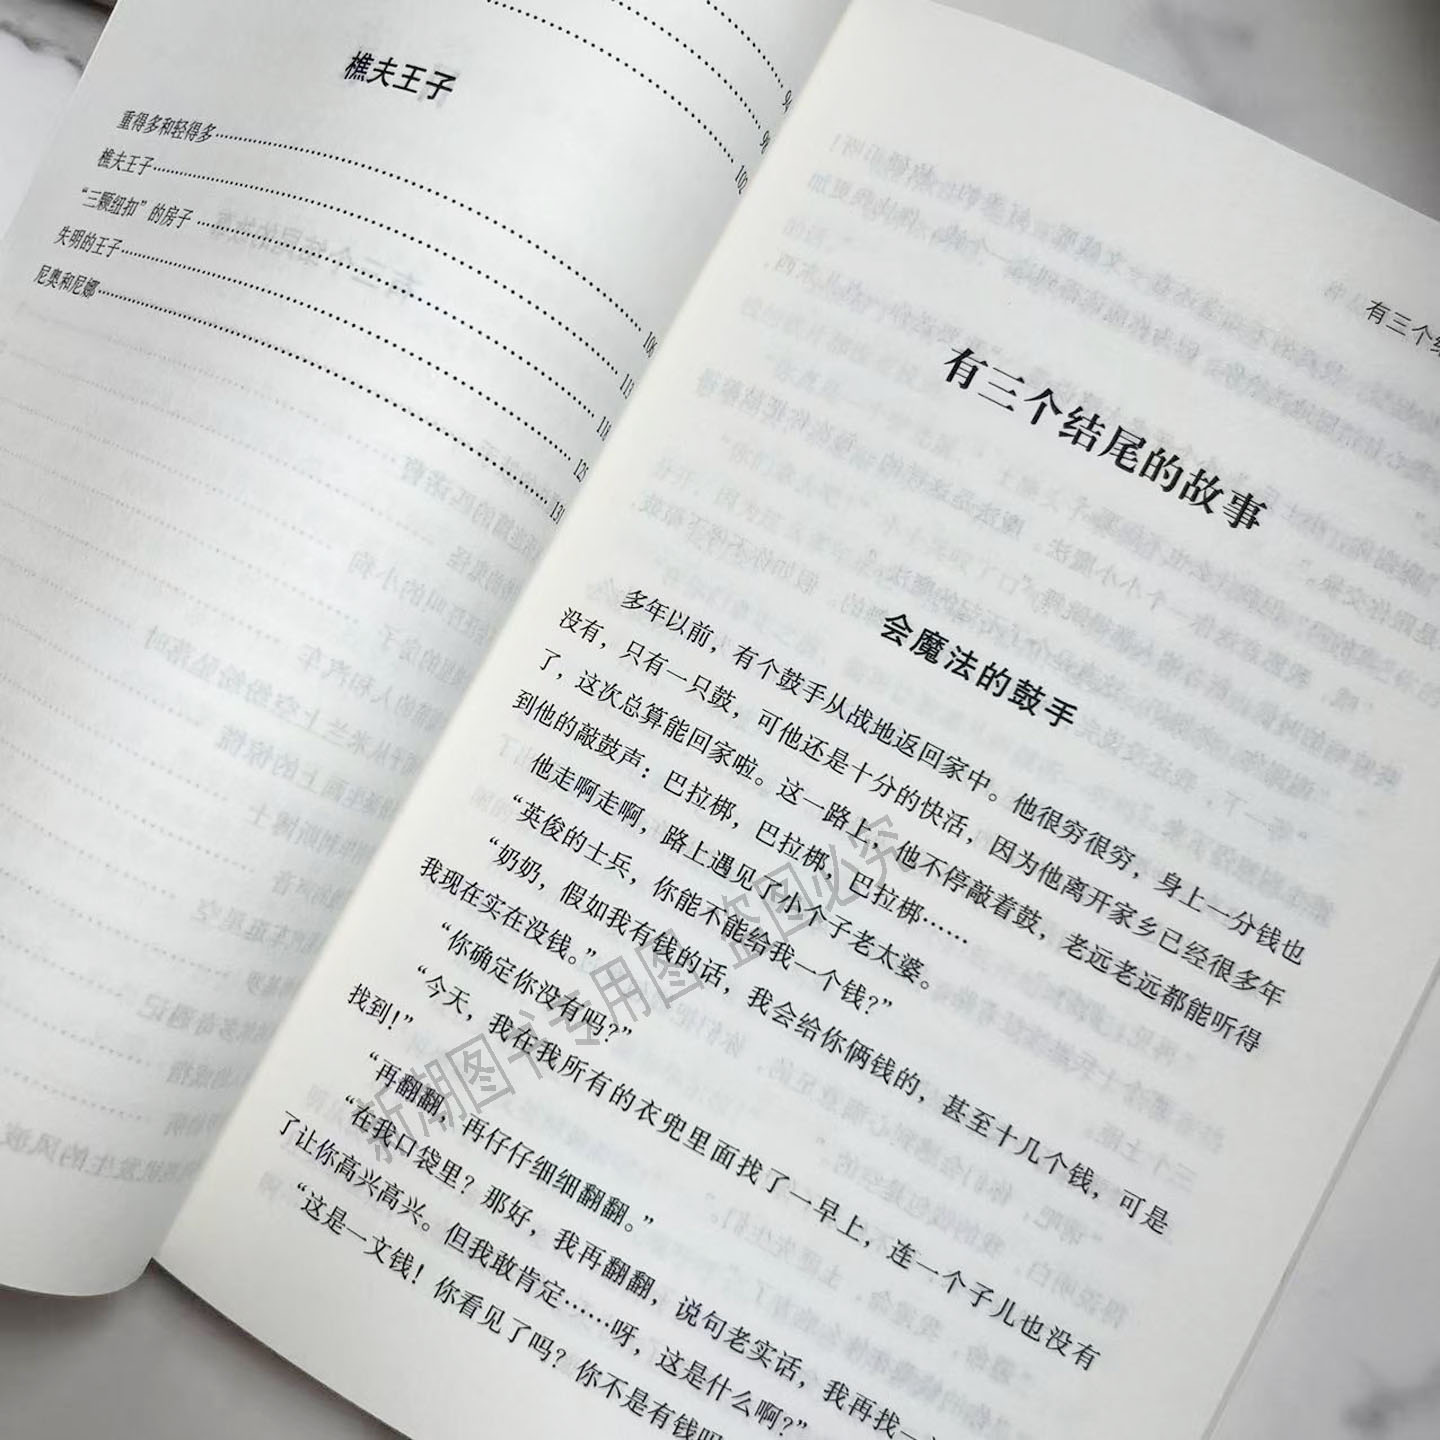 94
96
102
樵夫王子
重得多和轻得多
106
樵夫王子
113
“三颗纽扣”的房子
118
失明的王子
125
尼奥和尼娜
131
有三个结
有三个结尾的故事
会魔法的鼓手
多年以前，有个鼓手从战地返回家中。他很穷很穷，身上一分钱也
没有，只有一只鼓，可他还是十分的快活，因为他离开家乡已经很多年
了，这次总算能回家啦。这一路上，他不停敲着鼓，老远老远都能听得
到他的敲鼓声：巴拉梆，巴拉梆，巴拉梆……
他走啊走啊，路上遇见了小个子老太婆。
“英俊的士兵，你能不能给我一个钱？”
“奶奶，假如我有钱的话，我会给你俩钱的，甚至十几个钱，可是
我现在实在没钱。”
“你确定你没有吗？”
“今天，我在我所有的衣兜里面找了一早上，连一个子儿也没有
找到！”
“再翻翻，再仔仔细细翻翻。”
“在我口袋里？那好，我再翻翻，说句老实话，我再找一
了让你高兴高兴。但我敢肯定……呀，这是什么啊？”
“这是一文钱！你看见了吗？你不是有钱吗
新潮图书专用图 盗图必究